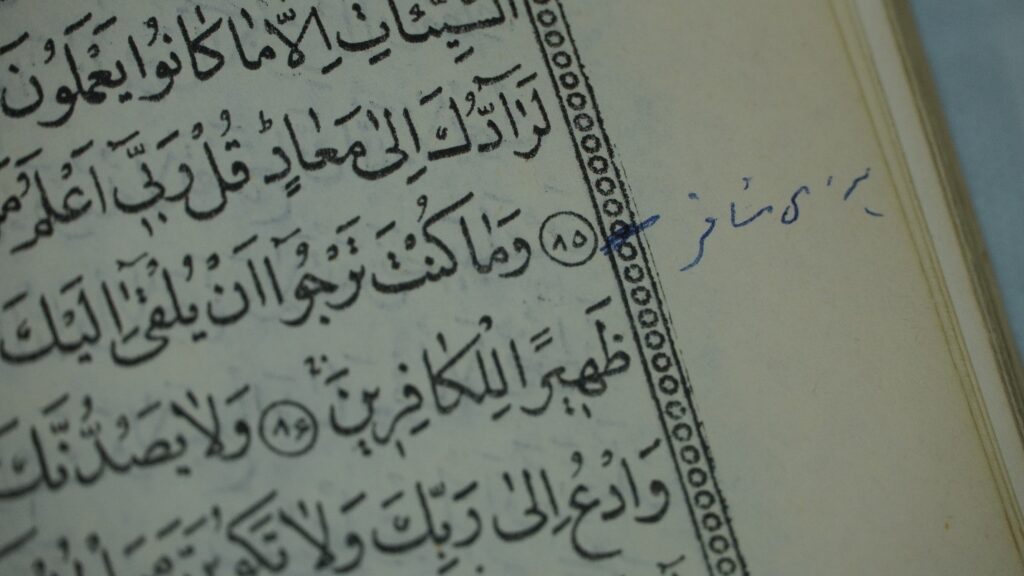 السَّيِّئَاتِ اِلّاَ مٰا كٰانُوا يَعْمَلُونَ
لَرٰآدُّكَ اِلىٰ مَعٰادٍ قُلْ رَبّي اَعْلَمُ
۸۵ وَمٰا كُنْتَ تَرْجُوٓا اَنْ يُلْقىٰٓ اِلَيْكَ
ظَهيرًا لِلْكٰافِرينَ ۸۶ وَلاٰ يَصُدُّنَّكَ
وَادْعُ اِلىٰ رَبِّكَ وَلاٰ تَكُونَنَّ
برای مسافر